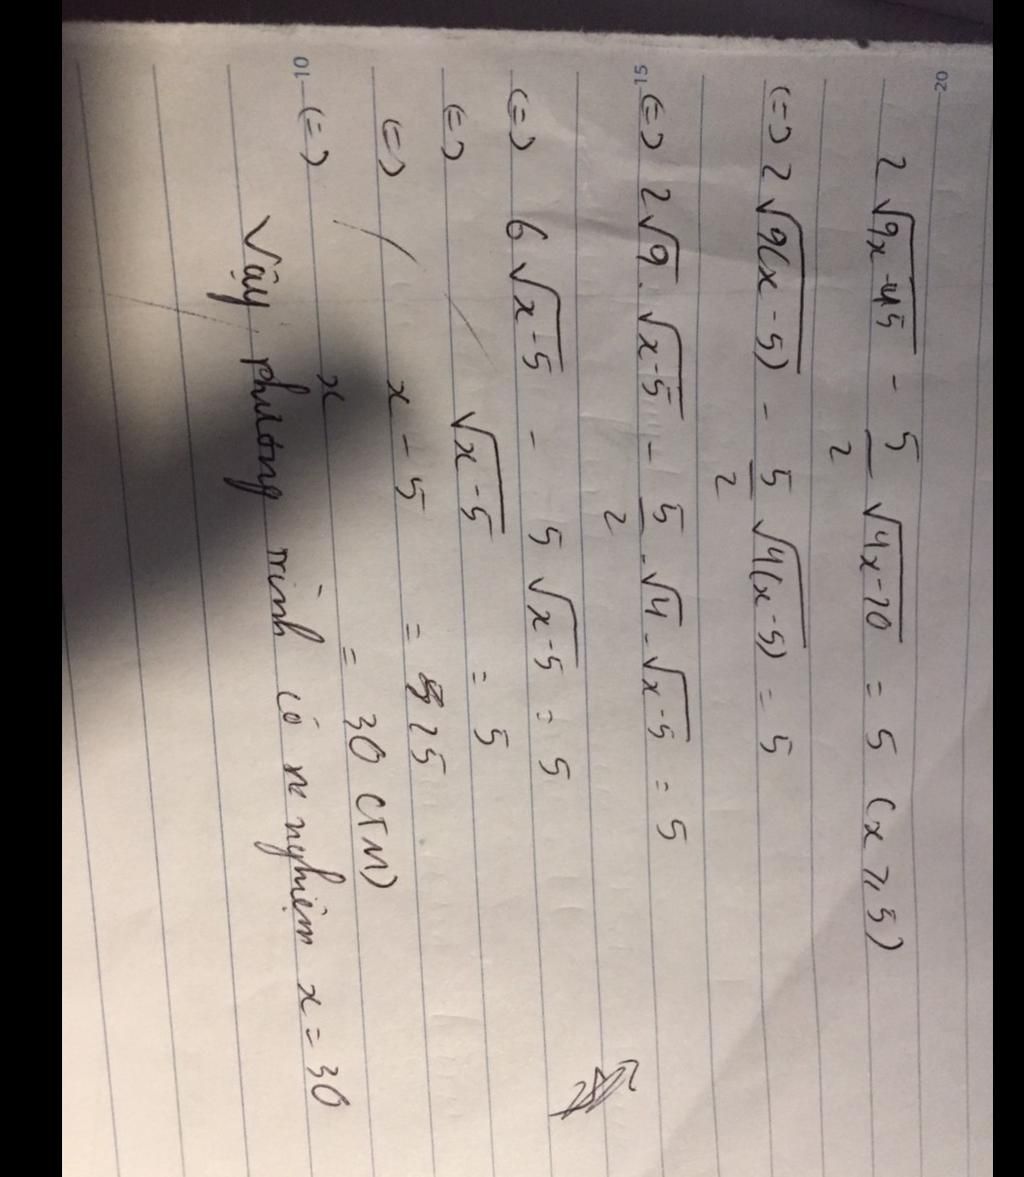 20
2√(9x-45) - 5/2 √(4x-20) = 5 (x ≥ 5)
(=) 2√(9(x-5)) - 5/2 √(4(x-5)) = 5
15
(=) 2√9 . √(x-5) - 5/2 . √4 . √(x-5) = 5
(=) 6√(x-5) - 5√(x-5) = 5
(=) √(x-5) = 5
(=) x - 5 = 25
10
(=) x = 30 (TM)
Vậy phương trình có nghiệm x = 30